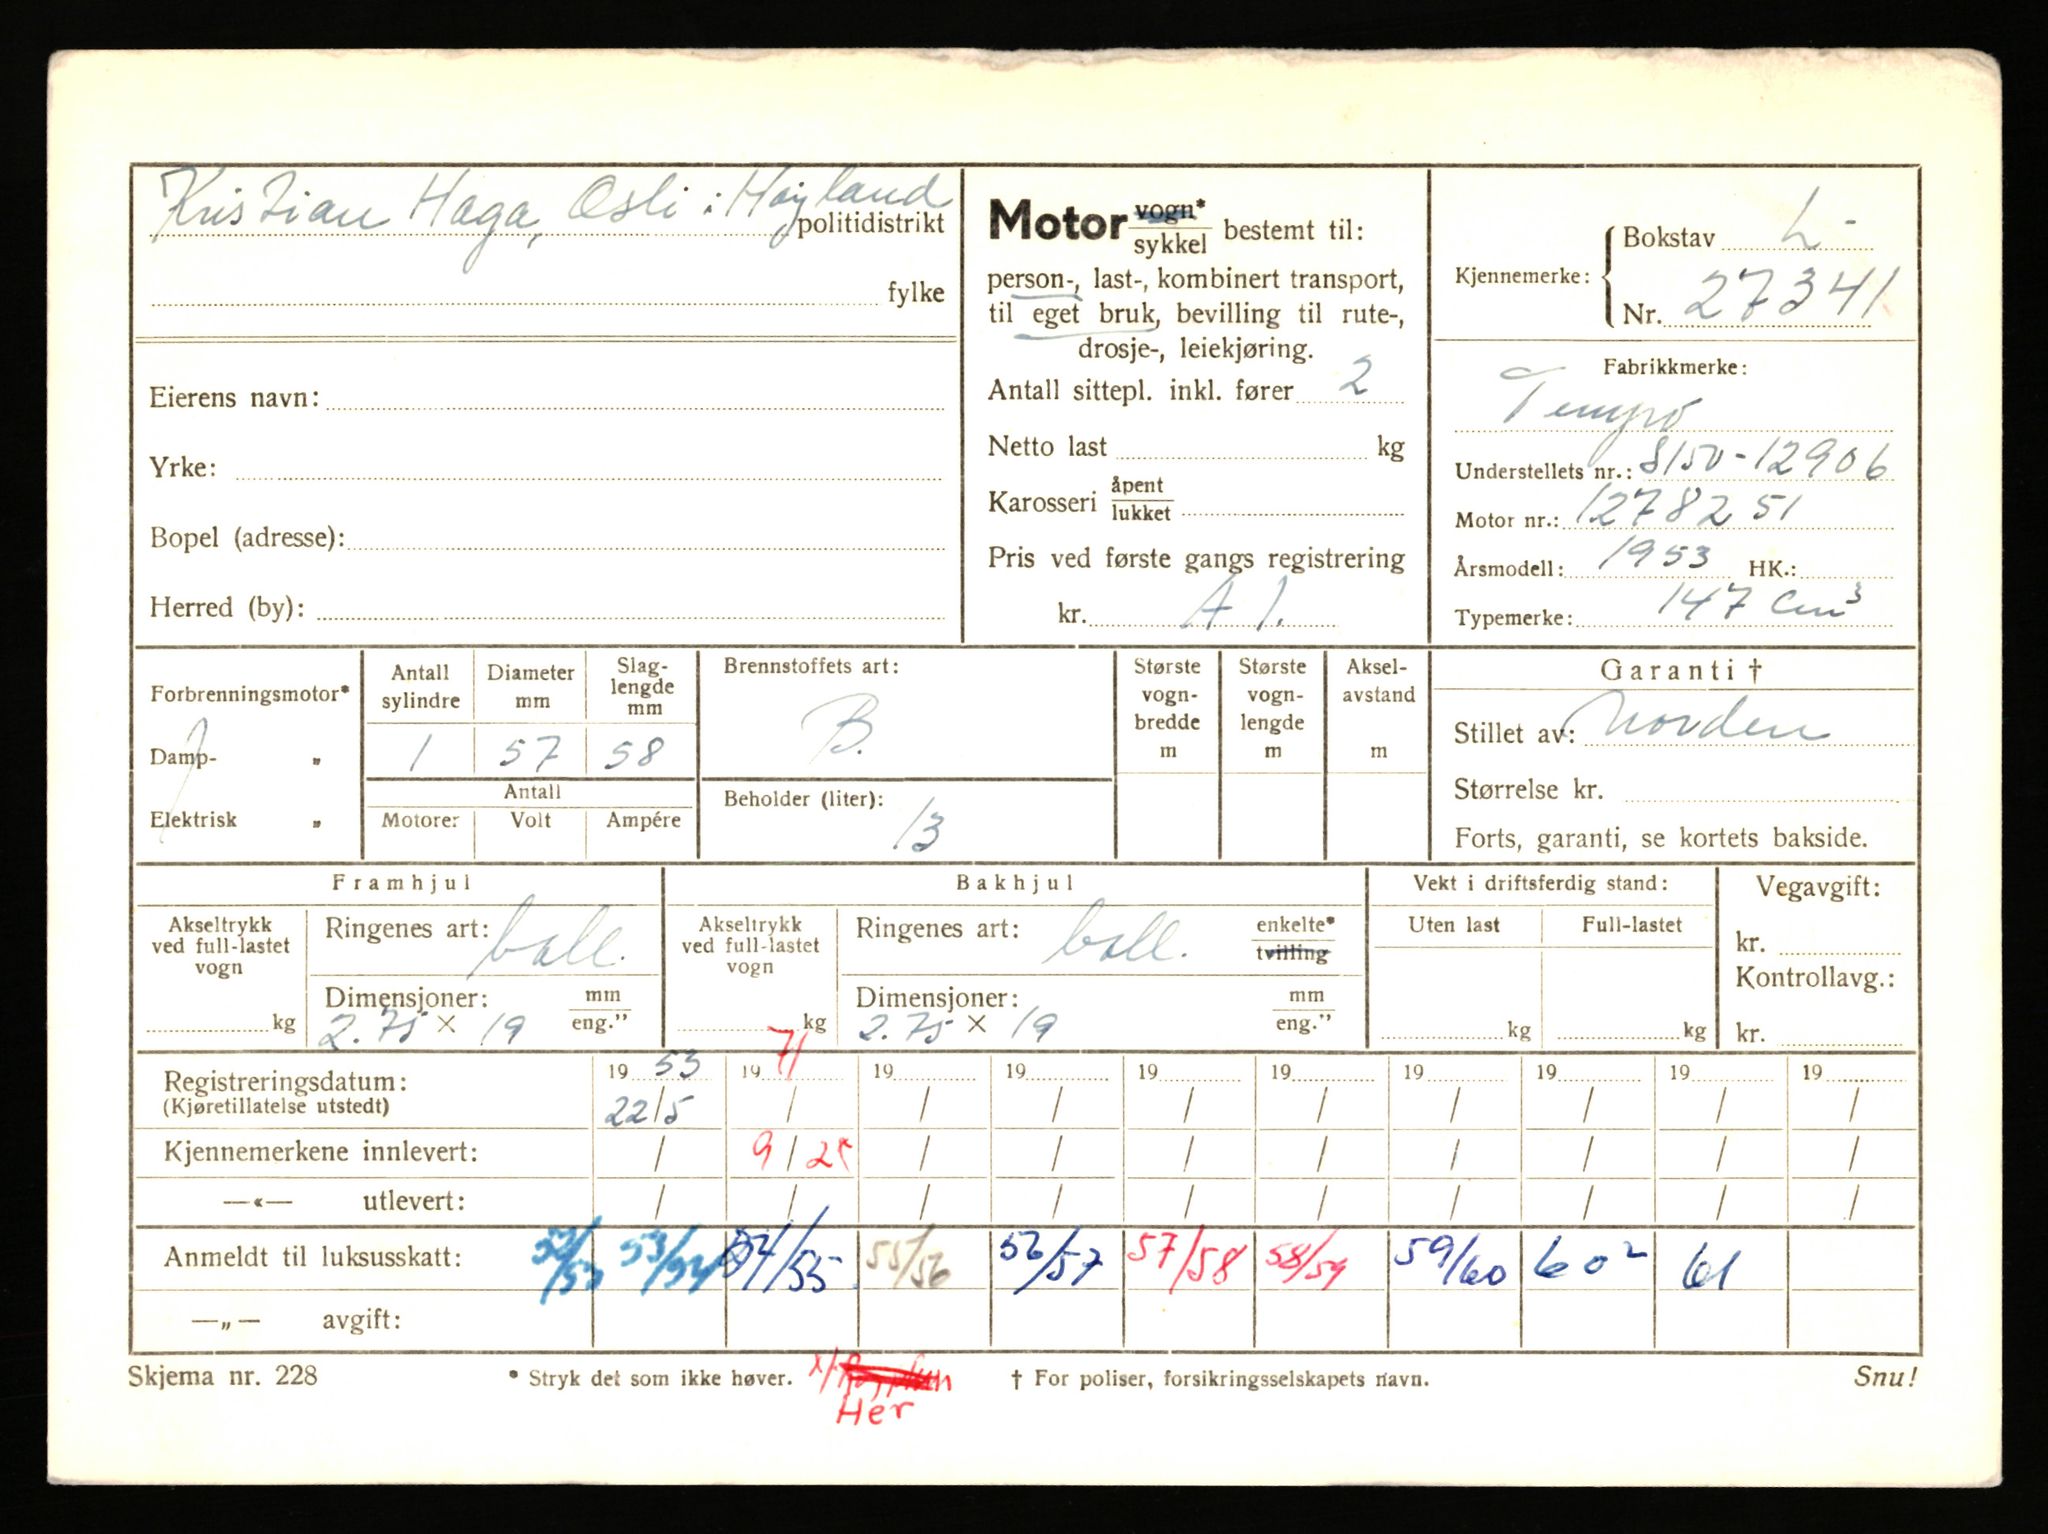 Kristian Haga, Osli i Høyland
politidistrikt
fylke
Eierens navn:
Yrke:
Bopel (adresse):
Herred (by):
Motor vogn* sykkel bestemt til:
person-, last-, kombinert transport,
til eget bruk, bevilling til rute-,
drosje-, leiekjøring.
Antall sittepl. inkl. fører 2
Netto last kg
Karosseri åpent lukket
Pris ved første gangs registrering
kr. A 1.
Kjennemerke: Bokstav L-
Nr. 27341
Fabrikkmerke:
Tempo
Understellets nr.: 8150-12906
Motor nr.: 1278251
Årsmodell: 1953 HK.:
Typemerke: 147 cm³
Forbrenningsmotor*
Damp- „
Elektrisk „
Antall sylindre Diameter mm Slag-lengde mm
1 57 58
Antall
Motorer Volt Ampére
Brennstoffets art:
B.
Beholder (liter):
13
Største vogn-bredde m
Største vogn-lengde m
Aksel-avstand m
Garanti †
Stillet av: Norden
Størrelse kr.
Forts, garanti, se kortets bakside.
Framhjul
Akseltrykk ved full-lastet vogn
kg
Ringenes art: ball.
Dimensjoner: mm eng."
2.75 × 19
Bakhjul
Akseltrykk ved full-lastet vogn
kg
Ringenes art: ball. enkelte* tvilling
Dimensjoner: mm eng."
2.75 × 19
Vekt i driftsferdig stand:
Uten last Full-lastet
kg kg
Vegavgift:
kr.
Kontrollavg.:
kr.
Registreringsdatum: 19 53 19 71 19 19 19 19 19 19 19 19
(Kjøretillatelse utstedt) 22/5 / / / / / / / / /
Kjennemerkene innlevert: / 9 / 2x / / / / / / / /
—«— utlevert: / / / / / / / / / /
Anmeldt til luksusskatt: 52/53 53/54 54/55 55/56 56/57 57/58 58/59 59/60 60² 61
—„— avgift:
Skjema nr. 228 * Stryk det som ikke høver. x/ † For poliser, forsikringsselskapets navn. Snu!
Her